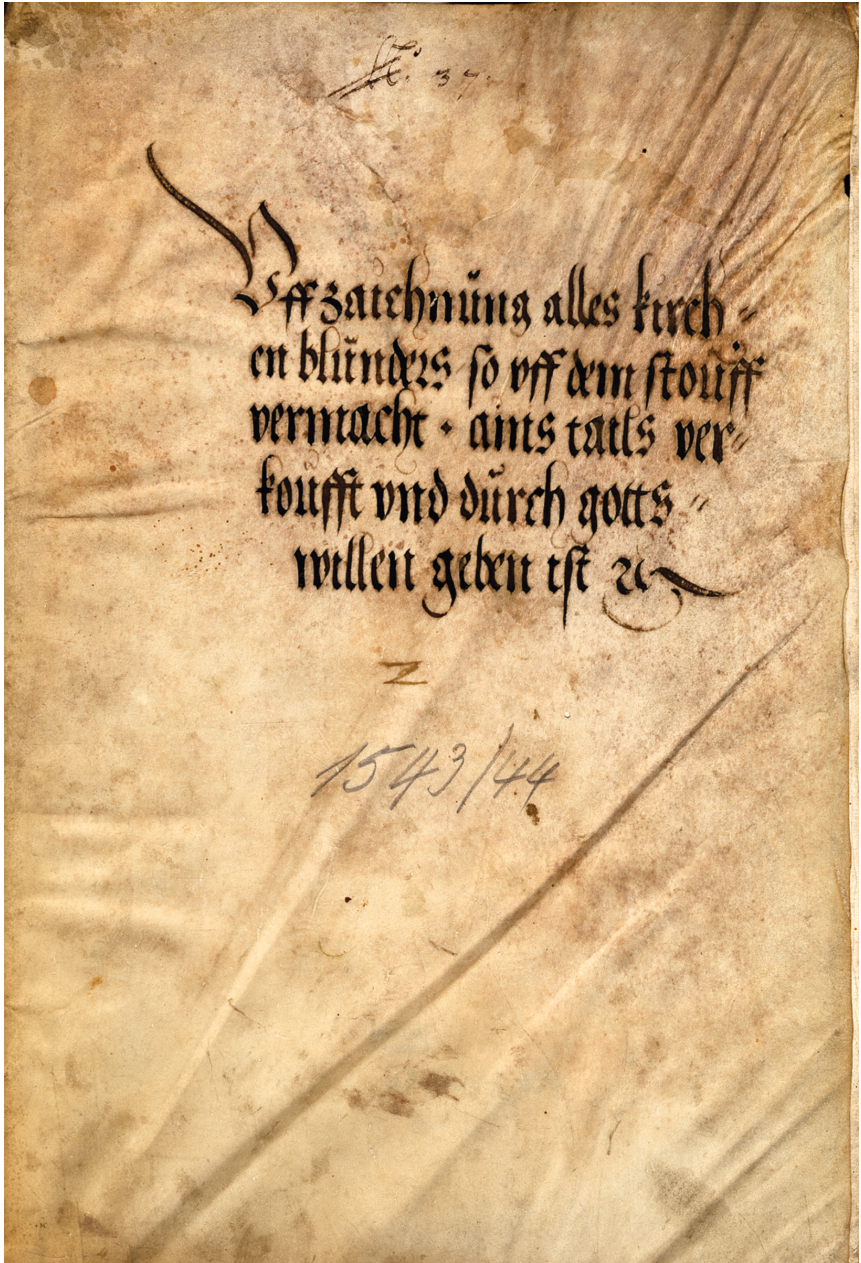 N. 37.
Vffzaichnŭng alles kirch=
en blŭnders so vff dem stoŭff
vermacht · ains tails ver=
koŭfft vnd dŭrch gotts=
willen geben ist ꝛc
Z
1543/44